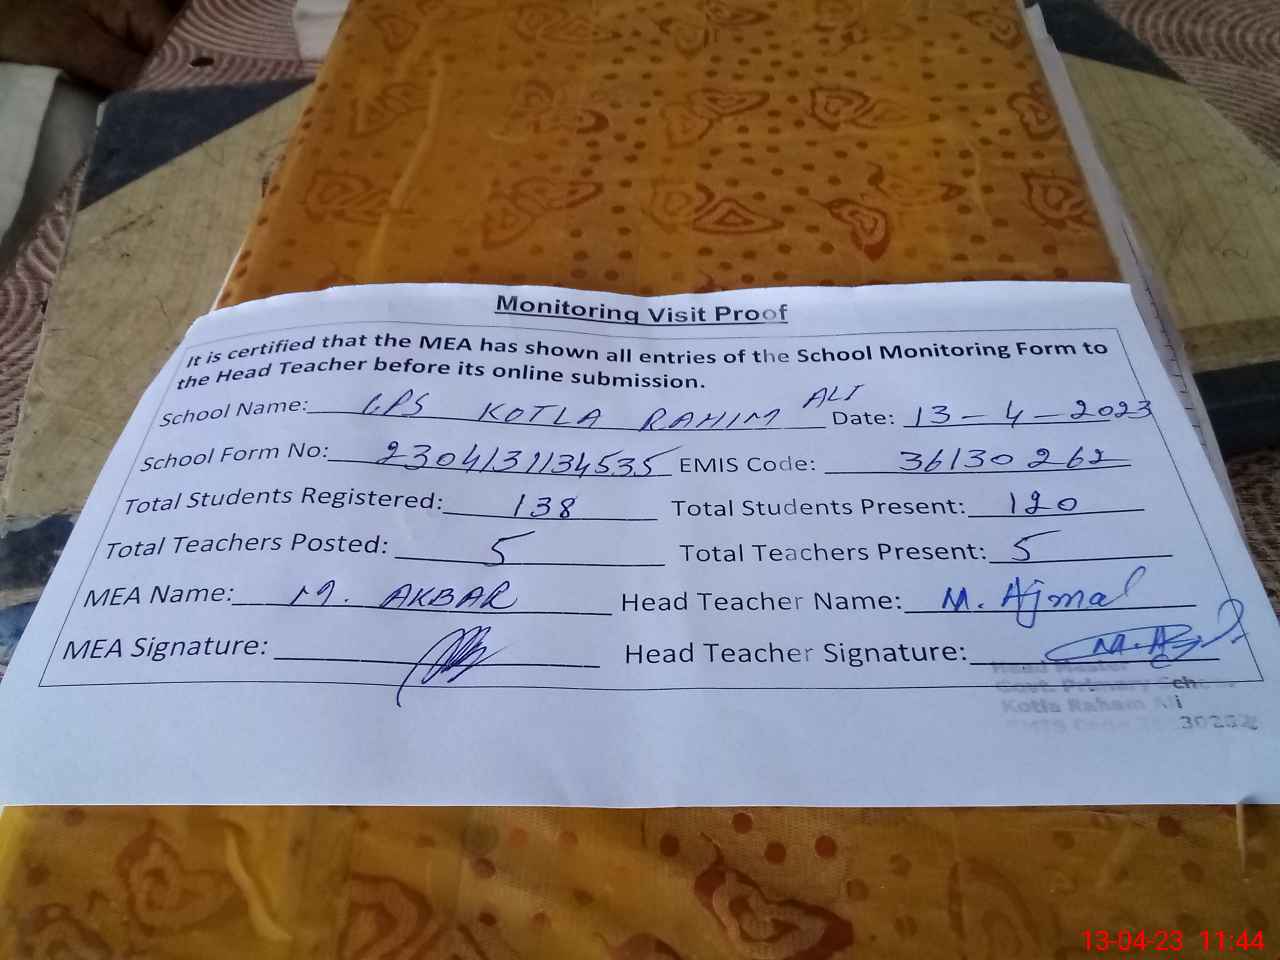 Monitoring Visit Proof
It is certified that the MEA has shown all entries of the School Monitoring Form to
the Head Teacher before its online submission.
School Name: GPS KOTLA RAHIM ALI Date: 13-4-2023
School Form No: 2304131134535 EMIS Code: 36130262
Total Students Registered: 138 Total Students Present: 120
Total Teachers Posted: 5 Total Teachers Present: 5
MEA Name: M. AKBAR Head Teacher Name: M. Ajmal
MEA Signature: Head Teacher Signature:
Head Master
Govt. Primary
Kotla Raham Ali
13-04-23 11:44